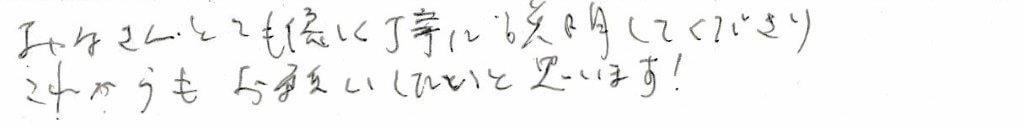 みなさん、とても優しく丁寧に説明してくださり
これからもお願いしたいと思います!